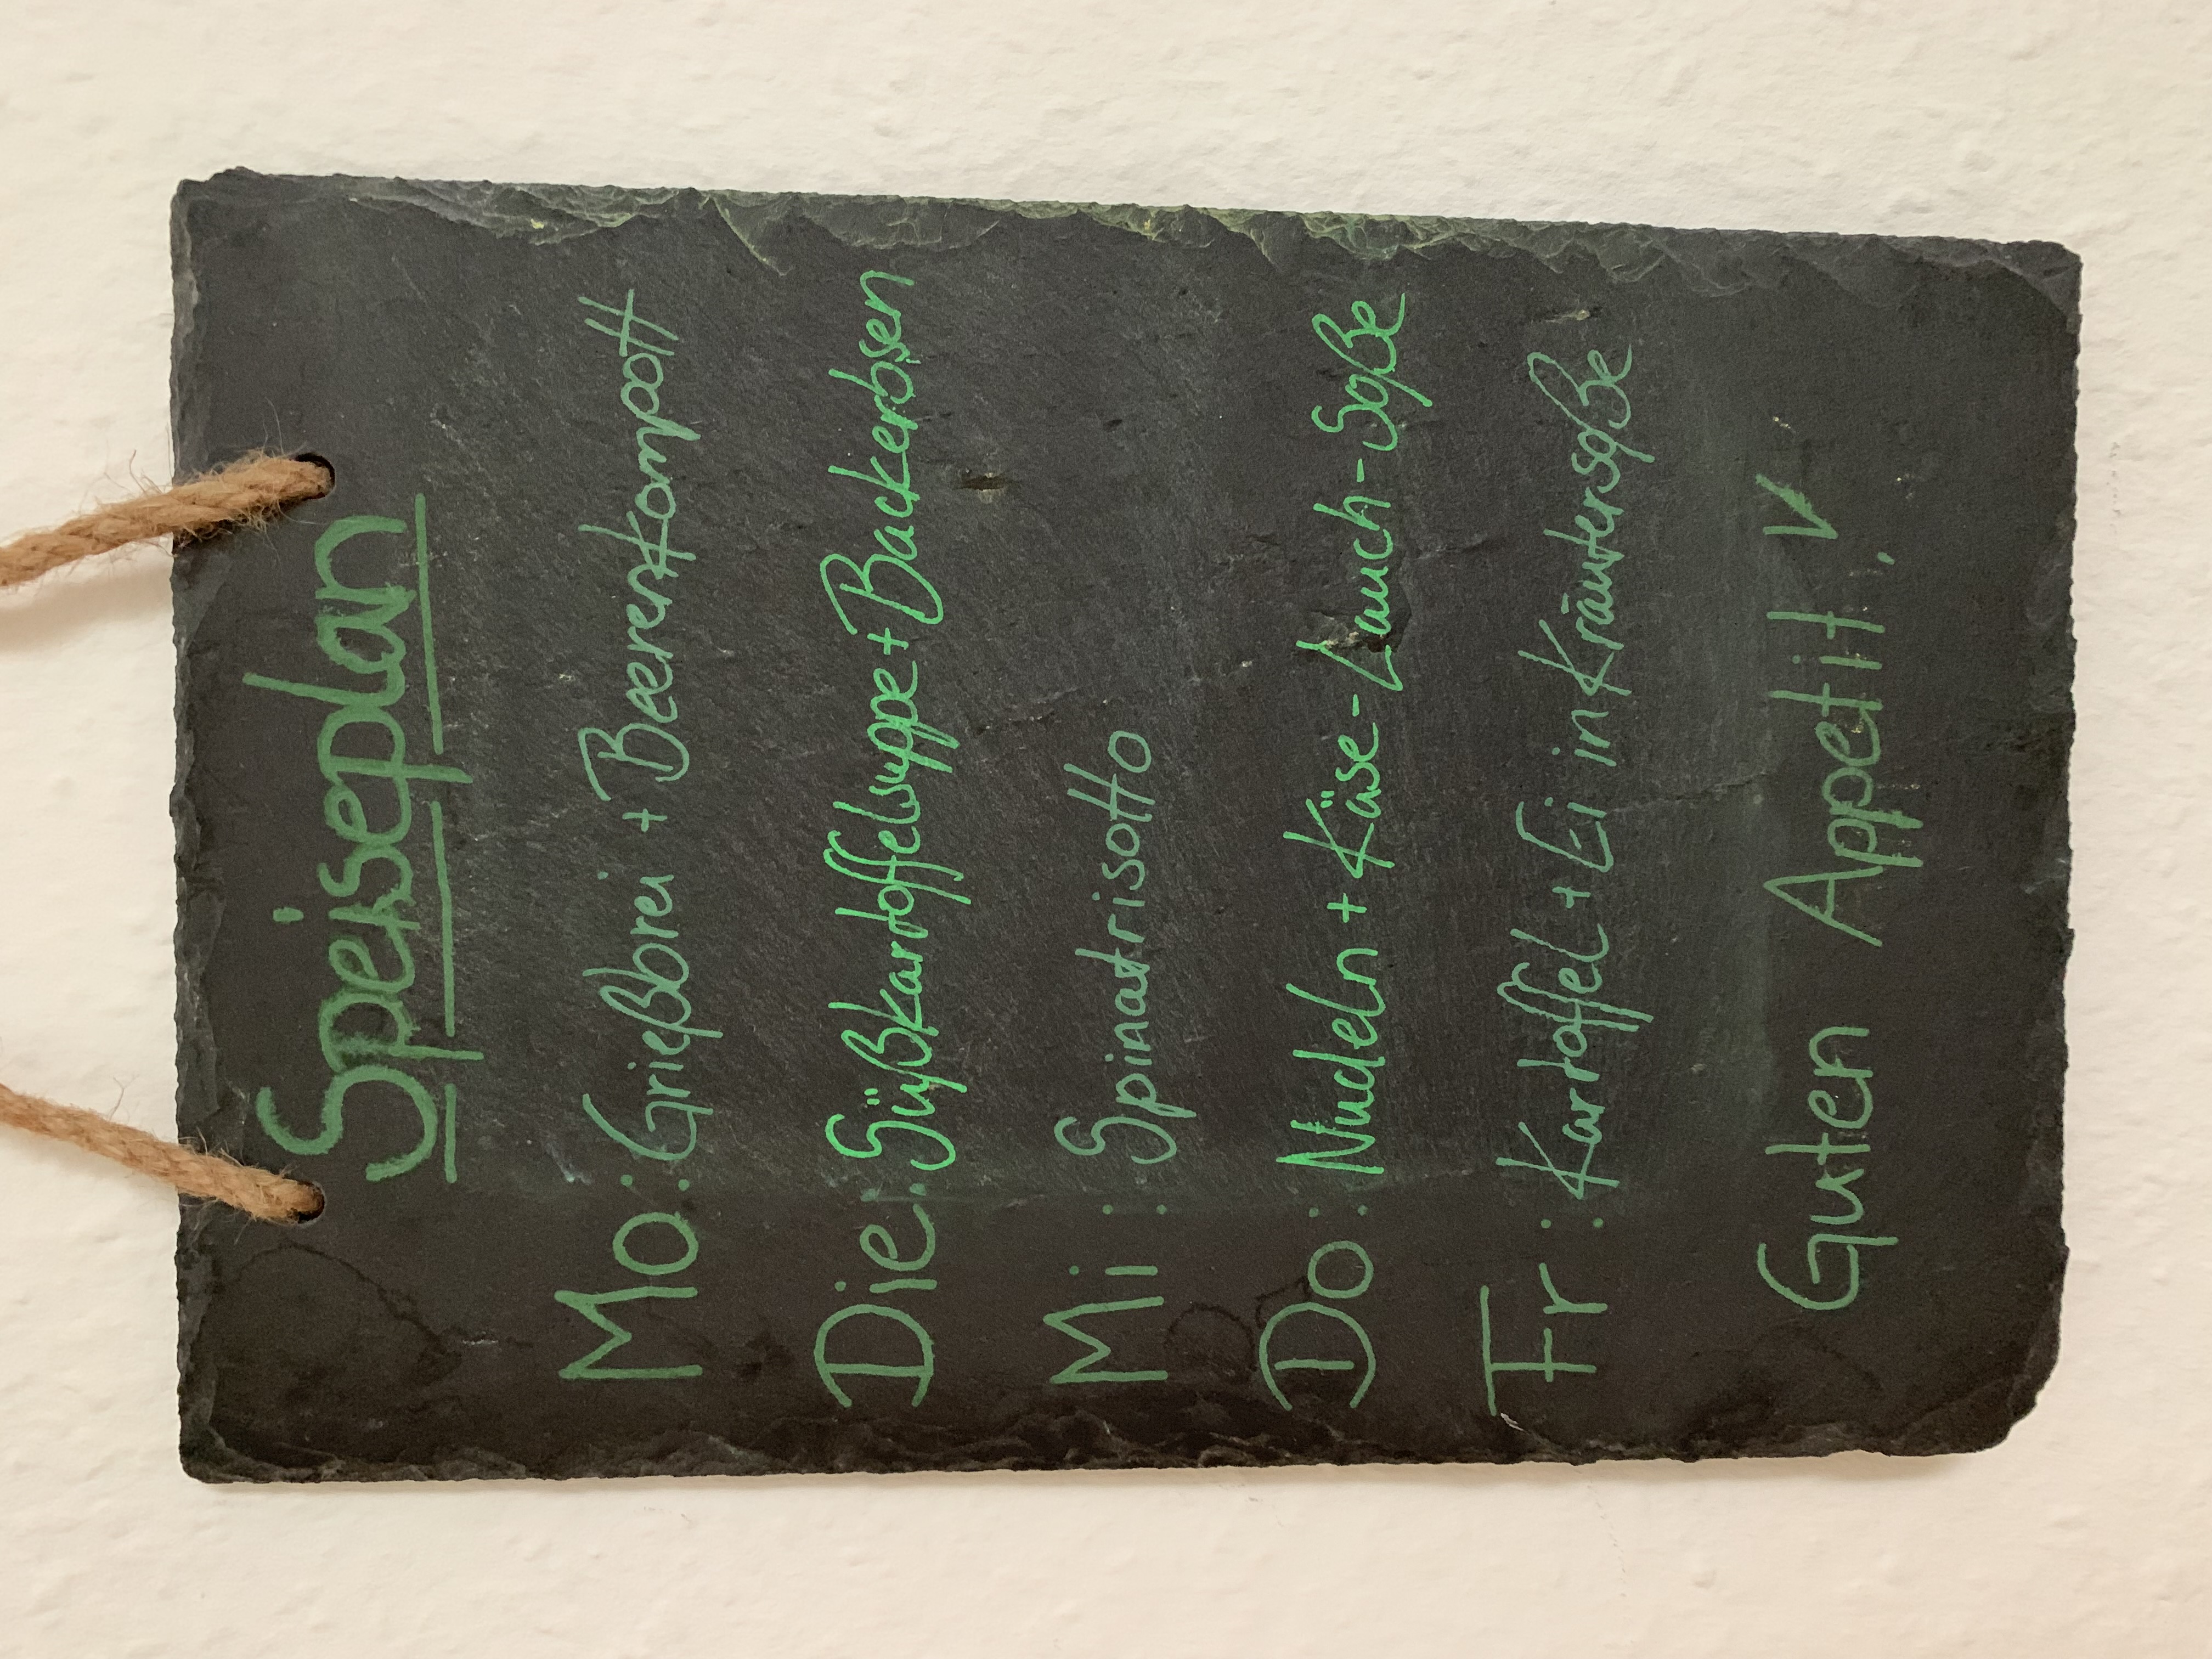 Speiseplan
Mo: Grießbrei + Beerenkompott
Die: Süßkartoffelsuppe + Backerbsen
Mi: Spinatrisotto
Do: Nudeln + Käse-Lauch-Soße
Fr: Kartoffel + Ei in Kräutersoße
Guten Appetit!